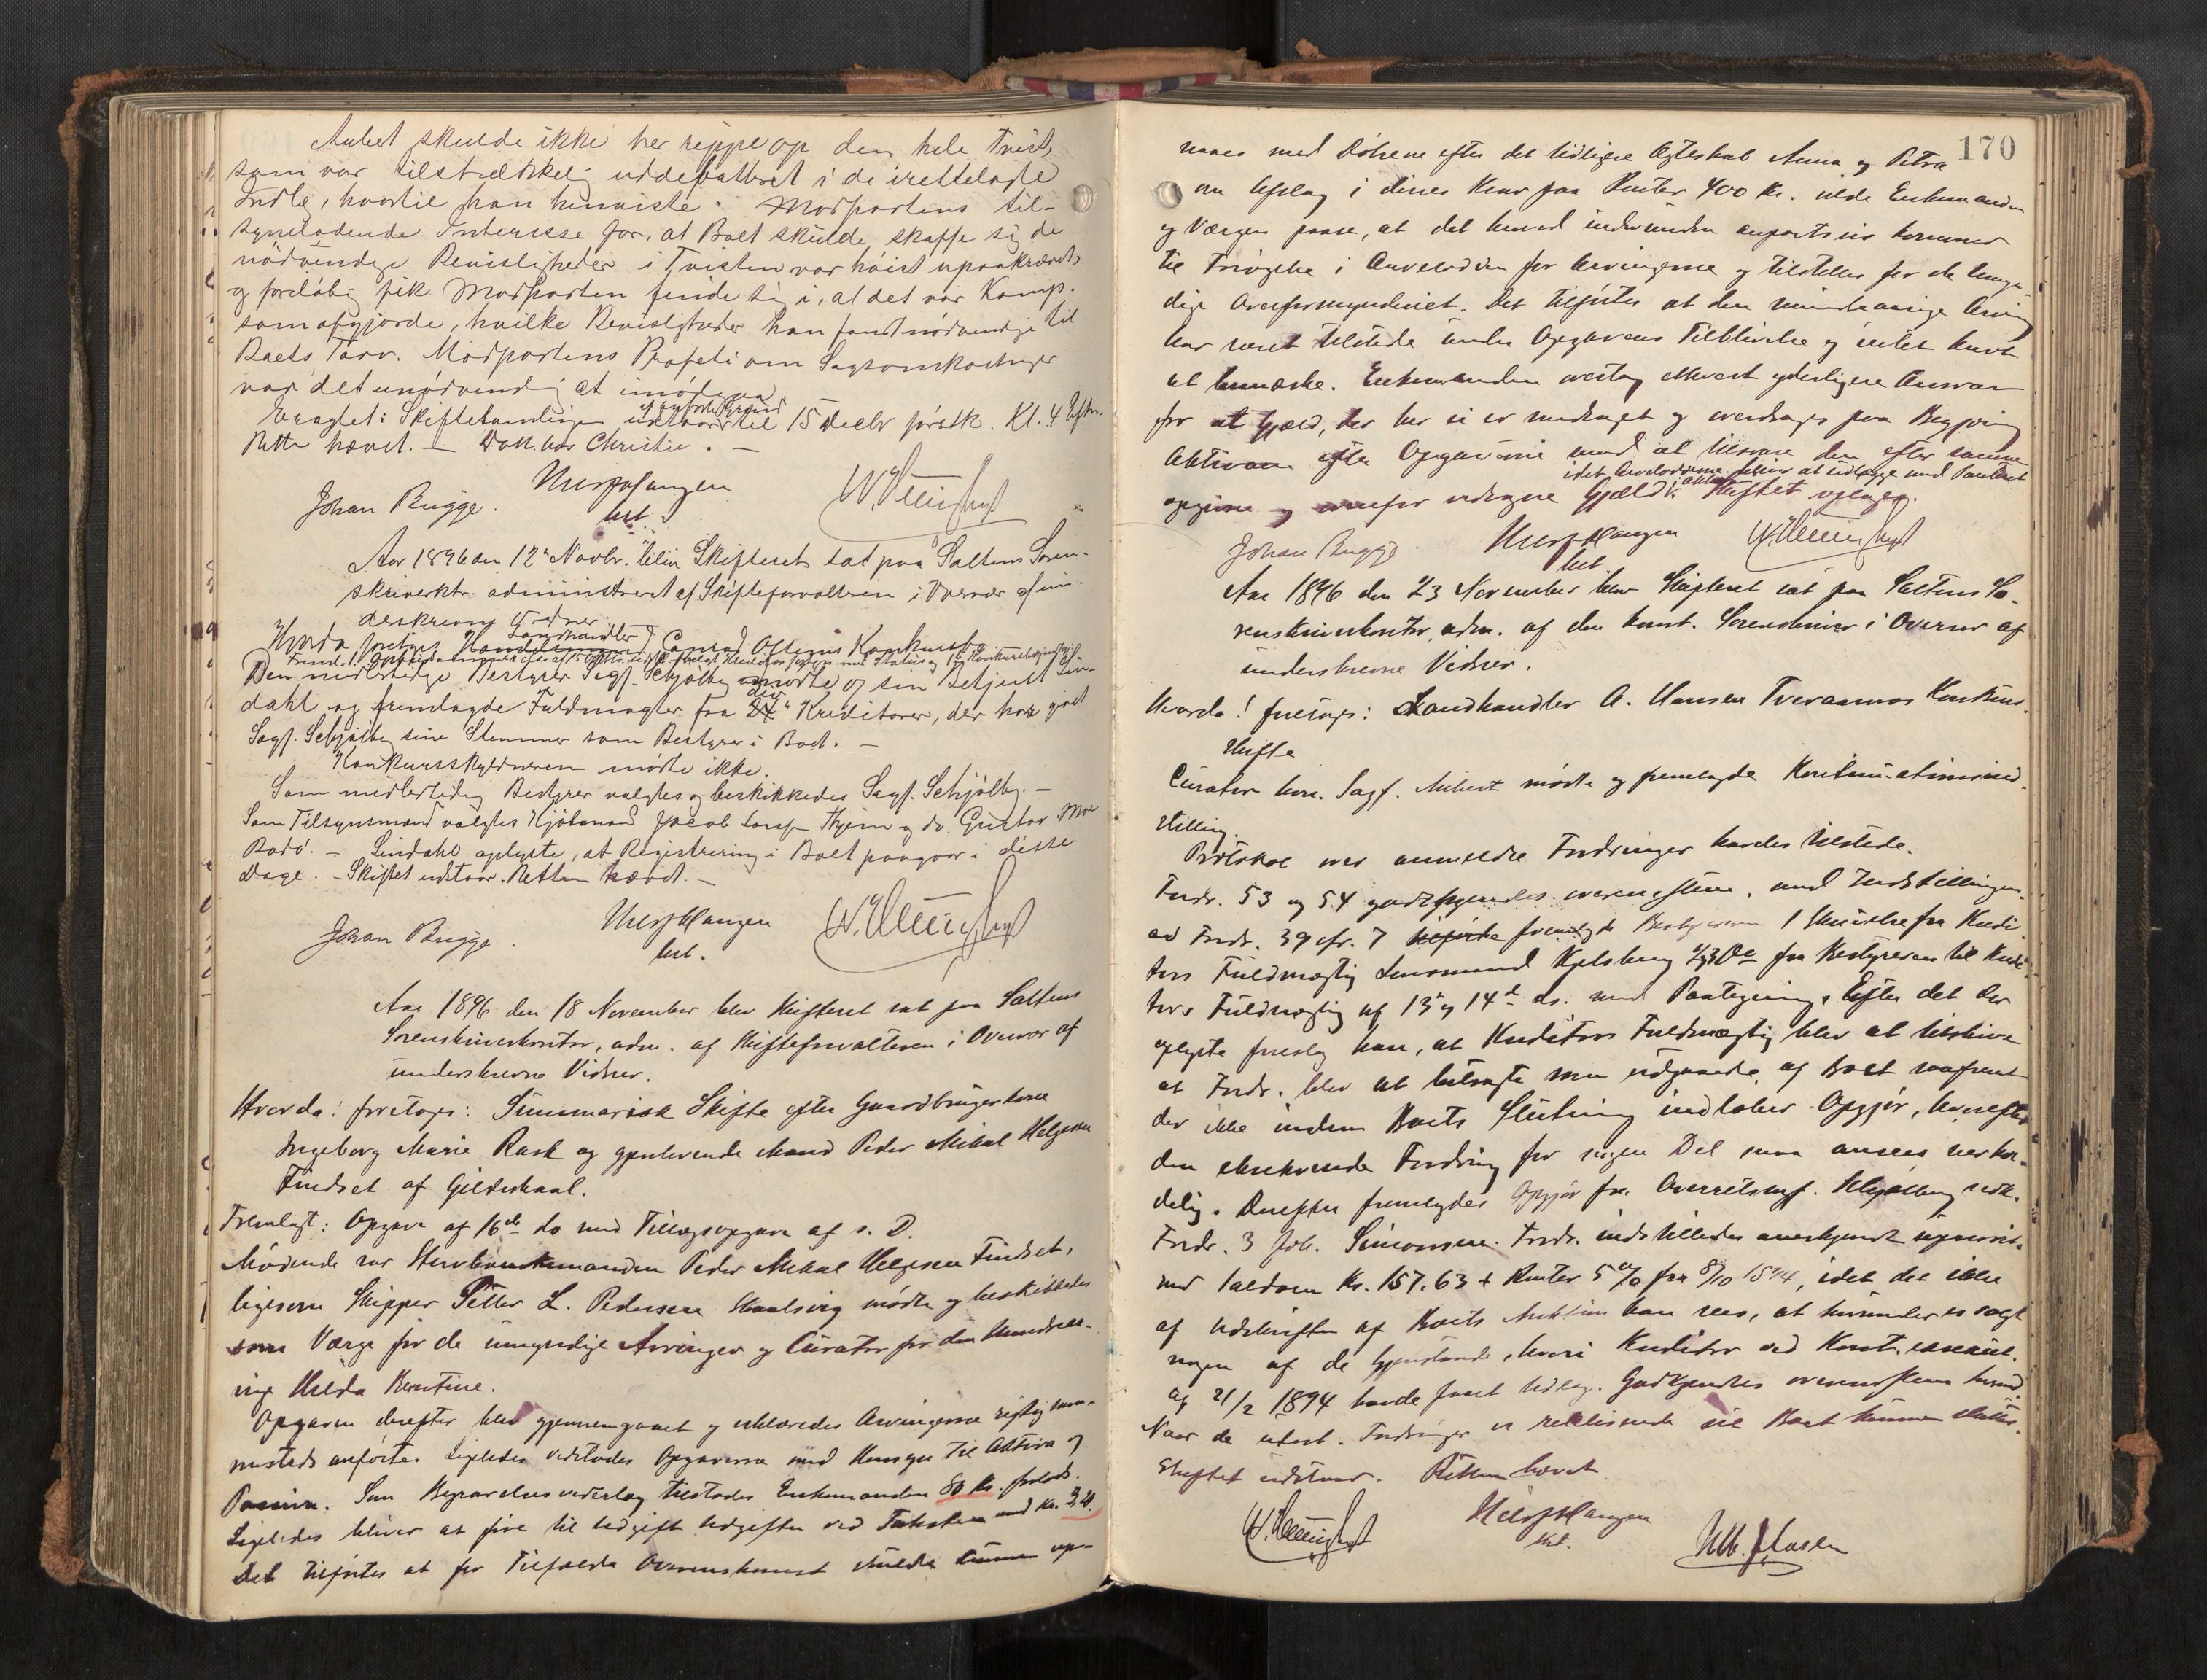 Aubert skulde ikke her rippe op den hele Tvist,
som var tilstrækkelig uddebatteret i de irettelagte
Indlæg, hvortil han henviste. Modpartens til-
syneladende Interesse for, at Boet skulde skaffe sig de
nödvendige Bevisligheder i Tvisten var höist upaakrævet,
og foreløbig fik Modparten finde sig i, at det var Komp.
som afgjorde, hvilke Bevisligheder han fandt nödvendige til
Boets Tarv. Modpartens Profeti om Sagsomkostninger
var det unödvendig at imödegaa
Eragtet: Skiftesamlingen udstaar til 15 Decbr förstk. Kl. 4 Eftm.
Retten hævet. — Dok. hos Christie. —
Johan Bugge.
Aar 1896 den 12te Novbr. blev Skifteret sat paa Saltens Soren-
skriverktr. administreret af Skifteforvalteren i Overvær af un-
derskrevne Vidner.
Hvorda foretoges Landhandler Conrad Konkursbo
Den midlertidige Bestyrer Sagf. Schjölberg mödte og sm Betjent Lin-
dahl og fremlagde Fuldmagter fra Kreditorer, der har givet
Sagf. Schjölberg sine Stemmer som Bestyrer i Boet. —
Konkursskyldneren mødte ikke.
Som midlertidig Bestyrer valgtes og beskikkedes Sagf. Schjölberg. —
Som Tilsynsmænd valgtes Kjöbmand Jacob og do. Gustav Moe
Bodö. — Lindahl oplyste, at Registrering i Boet paagaar i disse
Dage. — Skiftet udstaar. Retten hævet. —
Johan Bugge.
Aar 1896 den 18 November blev Skifteret sat paa Saltens
Sorenskriverkontor, adm. af Skifteforvalteren i Overvær af
underskrevne Vidner.
Hvorda! foretoges: Summarisk Skifte efter Gaardbrugerkone
Ingeborg Marie Rask og gjenlevende Mand Peder Mikal Helgesen
Findset af Gildeskaal.
Fremlagt: Opgave af 16de ds med Tillægsopgave af s. D.
Mödende var Peder Mikal Helgesen Findset,
ligesom Skipper Petter L. Pedersen mødte og beskikkedes
som Værge for de umyndige Arvinger og Curator for den Mindreaa-
rige Hilda Berntine.
Opgaven derefter blev gjennemgaaet og erklæredes Arvingerne rigtig sam-
mesteds anførte. Ligeledes vedtodes Opgaverne med Hensyn til Aktiva og
Passiva. Som Begravelsesvederlag tilstodes Enkemanden 80 Kr.
Ligeledes bliver at före til Udgift Udgifter ved med Kr.
Det tilføies at for Tilfælde Overenskomst skulde kunne op-
170
naaes med Döttrene efter det tidligere Ægteskab Anna og Petra
om Afslag i deres Krav paa Renter 400 Kr. vilde Enkemanden
og Værgen paase, at det herved indvundne kommer
til Forögelse i Arvelodden for Arvingerne og tilstilles for de umyn-
dige Overformynderiet. Det tilføies at den mindreaarige Arving
har været tilstede under Opgavens Tilblivelse og intet havt
at bemærke. Enkemanden overtog ethvert yderligere Ansvar
for al Gjæld, der her ei er medtaget og overdroges paa Begjæring
Aktivaen efter Opgaverne mod at tilsvare den efter samme
idet Arvelodderne bliver at udlægge med Panteret
opgivne og ovenfor vedtagne Gjæld. Skiftet
Johan Bugge.
Aar 1896 den 23 November blev Skifteret sat paa Saltens So-
renskriverkontor, adm. af den konst. Sorenskriver i Overvær af
underskrevne Vidner.
Hvorda! foretoges: Landhandler A. Hansen Tveraamos Konkurs-
skifte
Curator bon. Sagf. Aubert mödte og fremlagde
stilling.
Protokol over anmeldte Fordringer havdes tilstede.
Fordr. 53 og 54 godkjendtes overensstem. med Indstillingen
ad Fordr. 39 cfr. 7 fremlagde Bestyreren 1 Skrivelse fra Kredi-
tors Fuldmægtig Lensmand fra Bestyreren til Kredi-
tors Fuldmægtig af 13de og 14de ds. med Paategning. Efter det der
oplyste foreslog han, at Kreditors Fuldmægtig blev at tilskrive
at Fordr. blev at betragte som udgaaede af Boet saafremt
der ikke inden Boets Slutning indløber Opgjør, hvorefter
den Fordring for nogen Del maa ansees
Derefter fremlagdes Opgjør fra Overretssagf. Schjølberg vedk.
Fordr. 3 Joh. Simonsen. Fordr. indstilledes anerkjendt
med Saldoen Kr. 157.63 + Renter 5% fra 8/10 1894, idet det ikke
af Udskriften af Boets Auktion kan sees, at herunder er solgt
nogen af de Gjenstande, hvori Kreditor ved
af 21/2 1894 havde faaet Udlæg. Godkjendtes overensstem. hermed.
Naar de udest. Fordringer er realiserede vil Boet kunne sluttes.
Skiftet udstaar. Retten hævet